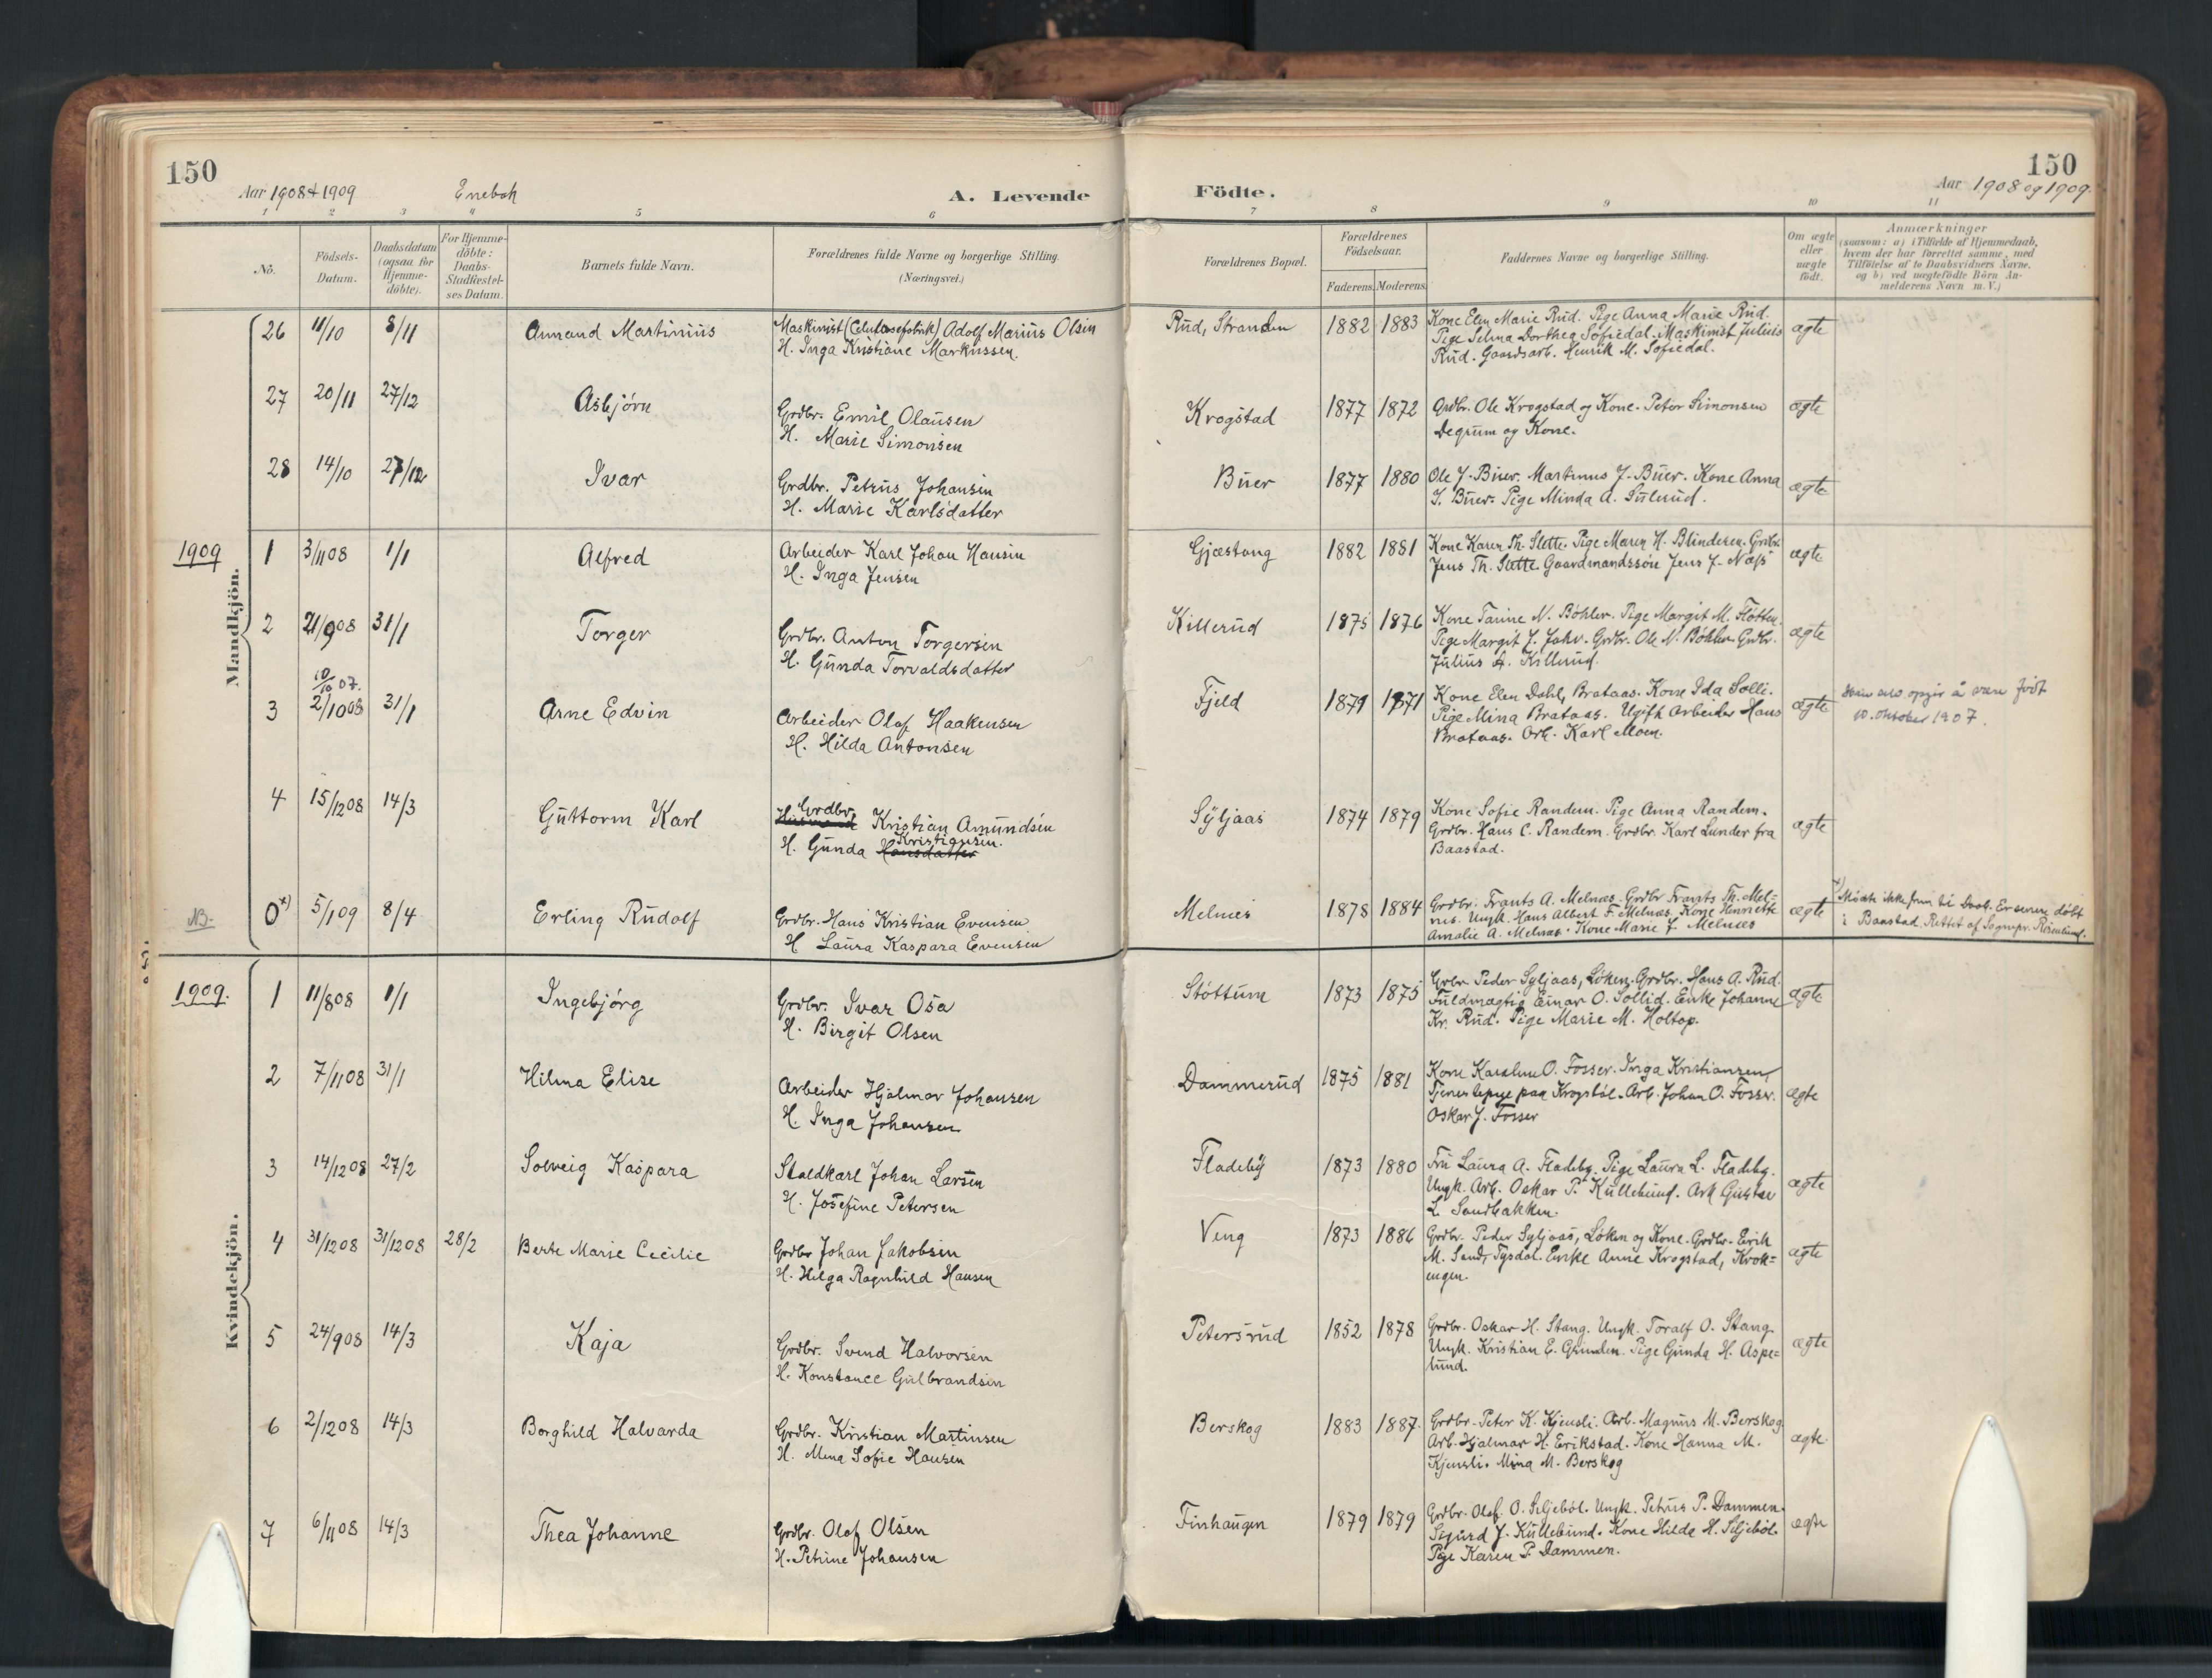 150
Aar 1908 & 1909 Enebak A. Levende
1 2 3 4 5 6
No. Födsels-Datum. Daabsdatum (ogsaa for Hjemme-döbte). For Hjemme-döbte: Daabs-Stadfæstel-ses Datum. Barnets fulde Navn. Forældrenes fulde Navne og borgerlige Stilling. (Næringsvei.)
Mandkjön.
26 11/10 8/11 Amand Martinius Maskinist (Celulosefabrik) Adolf Marius Olsen
H. Inga Kristiane Markussen.
27 20/11 27/12 Asbjørn Grdbr. Emil Olausen
H. Marie Simonsen
28 14/10 27/12 Ivar Grdbr. Petrus Johansen
H. Marie Karlsdatter
1909 1 3/11 08 1/1 Alfred Arbeider Karl Johan Hansen
H. Inga Jensen
2 21/9 08 31/1 Torger Grdbr. Anton Torgersen
H. Gunda Torvaldsdatter
10/10 07.
3 2/10 08 31/1 Arne Edvin Arbeider Olaf Haakensen
H. Hilda Antonsen
4 15/12 08 14/3 Guttorm Karl Grdbr. Kristian Amundsen
H. Gunda Hansdatter Kristiansen.
NB. 0 x) 5/1 09 8/4 Erling Rudolf Grdbr. Hans Kristian Evensen
H Laura Kaspara Evensen
Kvindekjön.
1909. 1 11/8 08 1/1 Ingebjørg Grdbr. Ivar Osa
H. Birgit Olsen
2 7/11 08 31/1 Hilma Elise Arbeider Hjalmar Johansen
H. Inga Johansen
3 14/12 08 27/2 Solveig Kaspara Staldkarl Johan Larsen
H. Josefine Petersen
4 31/12 08 31/12 08 28/2 Berte Marie Cecilie Grdbr Johan Jakobsen
H. Helga Ragnhild Hansen
5 24/9 08 14/3 Kaja Grdbr. Svend Halvorsen
H. Konstance Gulbrandsen
6 2/12 08 14/3 Borghild Halvarda Grdbr. Kristian Martinsen
H. Mina Sofie Hansen
7 6/11 08 14/3 Thea Johanne Grdbr. Olaf Olsen
H. Petrine Johansen
150
Födte. Aar 1908 og 1909.
7 8 9 10 11
Forældrenes Bopæl. Forældrenes Födselsaar. Faderens. Moderens. Faddernes Navne og borgerlige Stilling. Om ægte eller uægte födt. Anmærkninger (saasom: a) i Tilfælde af Hjemmedaab, hvem der har forrettet samme, med Tilföielse af to Daabsvidners Navne. og b) ved uægtefödte Börn An-melderens Navn m. V.)
Rud, Stranden 1882 1883 Kone Elen Marie Rud. Pige Anna Marie Rud. ægte
Pige Selma Dorthea Sofiedal. Maskinist Julius
Rud. Gaardsarb. Henrik M. Sofiedal.
Krogstad 1877 1872 Grdbr. Ole Krogstad og Kone. Peter Simonsen ægte
Degrum og Kone.
Buer 1877 1880 Ole J. Buer. Martinus J. Buer. Kone Anna ægte
J. Buer. Pige Minda A. Sulerud.
Gjæstang 1882 1881 Kone Karen Th. Slette. Pige Maren H. Blinderen. Grdbr. ægte
Jens Th. Slette. Gaardmandssøn Jens J. Næss
Killerud 1875 1876 Kone Tanine N. Bøhler. Pige Margit M. Fløtten. ægte
Pige Margit J. Jahr. Grdbr. Ole N. Bøhler. Grdbr.
Julius A. Killerud.
Fjeld 1879 1871 Kone Elen Dahl, Brataas. Kone Ida Solli. ægte
Pige Mina Brataas. Ugift Arbeider Hans
Brataas. Arb. Karl Moen.
opgir å være født
10. oktober 1907.
Syljaas 1874 1879 Kone Sofie Randem. Pige Anna Randem. ægte
Grdbr. Hans C. Randem. Grdbr. Karl Lunder fra
Baastad.
Melnes 1878 1884 Grdbr. Frants A. Melnæs. Grdbr Frants Th. Mel= ægte
nes. Ungk. Hans Albert F. Melnæs. Kone Henriette
Amalie A. Melnæs. Kone Marie F. Melnæs
x) Mødte ikke frem til Daab. Er senere døbt
i Baastad. Rettet af Sognepr. Rosenlund.
Støttum 1873 1875 Grbr. Peder Syljaas, Løken. Grdbr. Hans A. Rud. ægte
Fuldmægtig Einar O. Sollid. Enke Johanne
Kr. Rud. Pige Marie M. Holtop.
Dammerud 1875 1881 Kone Karoline O. Fosser. Inga Kristiansen, ægte
Tjenestepige paa Krogsbøl. Arb. Johan O. Fosser.
Oskar J. Fosser
Fladeby 1873 1880 Fru Laura A. Fladeby. Pige Laura L. Fladeby. ægte
Ungk. Arb. Oskar P. Kullebund. Arb Gustav
L. Sandbakken.
Veng 1873 1886 Grdbr. Peder Syljaas, Løken og Kone. Grdbr. Erik ægte
M. Sand, Tysdal. Enke Anne Krogstad, Krok=
engen.
Petersrud 1852 1878 Grdbr. Oskar H. Stang. Ungk. Toralf O. Stang. ægte
Ungk. Kristian E. Grinden. Pige Gunda H. Aspe=
lund.
Berskog 1883 1887. Grdbr. Peter K. Kjensli. Arb. Magnus M. Berskog ægte.
Arb. Hjalmar H. Erikstad. Kone Hanna M.
Kjensli. Mina M. Berskog
Finhaugen 1879 1879 Grdbr. Olaf O. Siljebøl. Ungk. Petrus P. Dammen. ægte
Sigurd J. Kullebund. Kone Hilda H. Siljebøl.
Pige Karen P. Dammen.